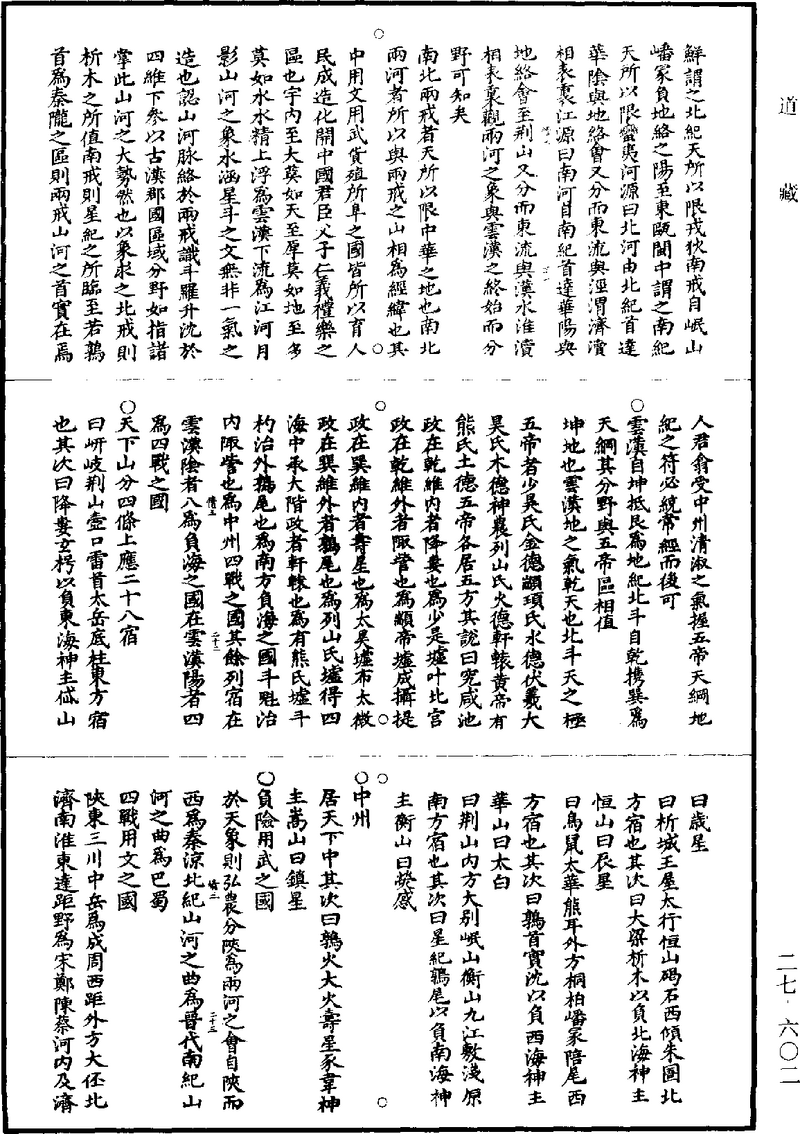 道藏
鮮謂之北紀天所以限戎狄南戒自岷山
嶓冢負地絡之陽至東甌閩中謂之南紀
天所以限蠻夷河源曰北河由北紀首達
華陰與地絡會又分而東流與涇渭濟瀆
相表裏江源曰南河自南紀首達華陽與
地絡會至荆山又分而東流與漢水淮瀆
相表裏觀兩河之象與雲漢之終始而分
野可知矣
南北兩戒者天所以限中華之地也南北
兩河者所以與兩戒之山相爲經緯也其
中用文用武貨殖所阜之國皆所以育人
民成造化開中國君臣父子仁義禮樂之
區也宇内至大莫如天至厚莫如地至多
莫如水水精上浮爲雲漢下流爲江河月
影山河之象水涵星斗之文無非一氣之
造也認山河脉絡於兩戒識斗羅升沈於
四維下參以古漢郡國區域分野如指諸
掌此山河之大勢然也以象求之北戒則
析木之所值南戒則星紀之所臨至若鶉
首爲秦隴之區則兩戒山河之首實在焉
人君翕受中州清淑之氣握五帝天綱地
紀之符必統常經而後可
○雲漢自坤抵艮爲地紀北斗自乾携巽爲
天綱其分野與五帝區相值
坤地也雲漢地之氣乾天也北斗天之極
五帝者少昊氏金德顓頊氏水德伏羲大
昊氏木德神農列山氏火德軒轅黄帝有
熊氏土德五帝各居五方其説曰究咸池
政在乾維内者降婁也爲少昊墟叶北宮
政在乾維外者陬訾也爲顓帝墟成攝提
政在巽維内者壽星也爲太昊墟布太微
政在巽維外者鶉尾也爲列山氏墟得四
海中承大階政者軒轅也爲有熊氏墟斗
杓治外鶉尾也爲南方負海之國斗魁治
内陬訾也爲中州四戰之國其餘列宿在
雲漢陰者八爲負海之國在雲漢陽者四
爲四戰之國
○天下山分四條上應二十八宿
曰岍岐荆山壺口雷首太岳底柱東方宿
也其次曰降婁玄枵以負東海神主岱山
曰歲星
曰析城王屋太行恒山碣石西傾朱圉北
方宿也其次曰大梁析木以負北海神主
恒山曰辰星
曰鳥鼠太華熊耳外方桐柏嶓冢陪尾西
方宿也其次曰鶉首實沈以負西海神主
華山曰太白
曰荆山内方大别岷山衡山九江敷淺原
南方宿也其次曰星紀鶉尾以負南海神
主衡山曰熒惑
○中州
居天下中其次曰鶉火大火壽星豕韋神
主嵩山曰鎮星
○負險用武之國
於天象則弘農分陝爲兩河之會自陝而
西爲秦涼北紀山河之曲爲晉代南紀山
河之曲爲巴蜀
四戰用文之國
陝東三川中岳爲成周西距外方大伾北
濟南淮東達距野爲宋鄭陳蔡河内及濟
二七·六〇二